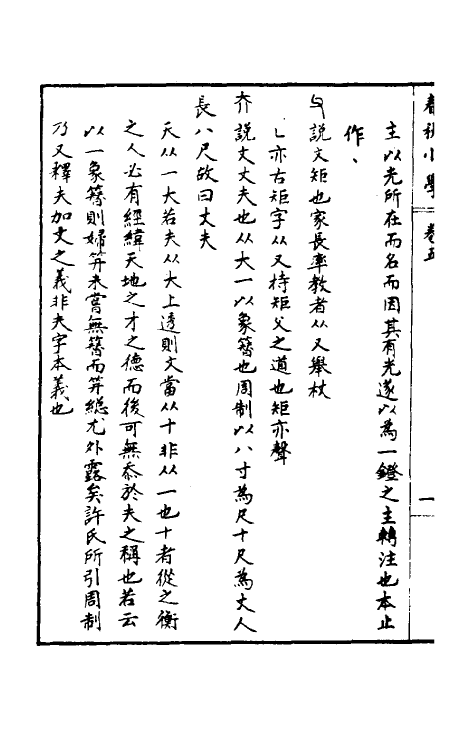 春秋小學 卷五 一
主以光所在而名而因其有光遂以為一鐙之主轉注也本止
作丶
𠬛說文矩也家長率教者从又舉杖
乚亦古矩字从又持矩父之道也矩亦聲
夰說文丈夫也从大一以象簪也周制以八寸為尺十尺為丈人
長八尺故曰丈夫
天从一大若夫从大上透則文當从十非从一也十者從之衡
之人必有經緯天地之才之德而後可無忝於夫之稱也若云
以一象簪則婦笄未嘗無簪而笄總尤外露矣許氏所引周制
乃又釋夫加丈之義非夫字本義也